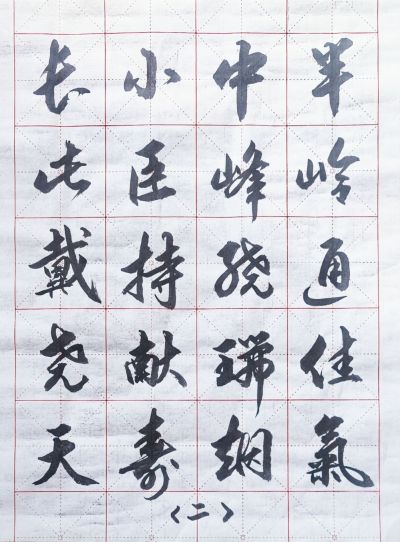 半岭通佳氣
中峰绕瑞烟
小臣持献寿
长此戴尧天
〈二〉